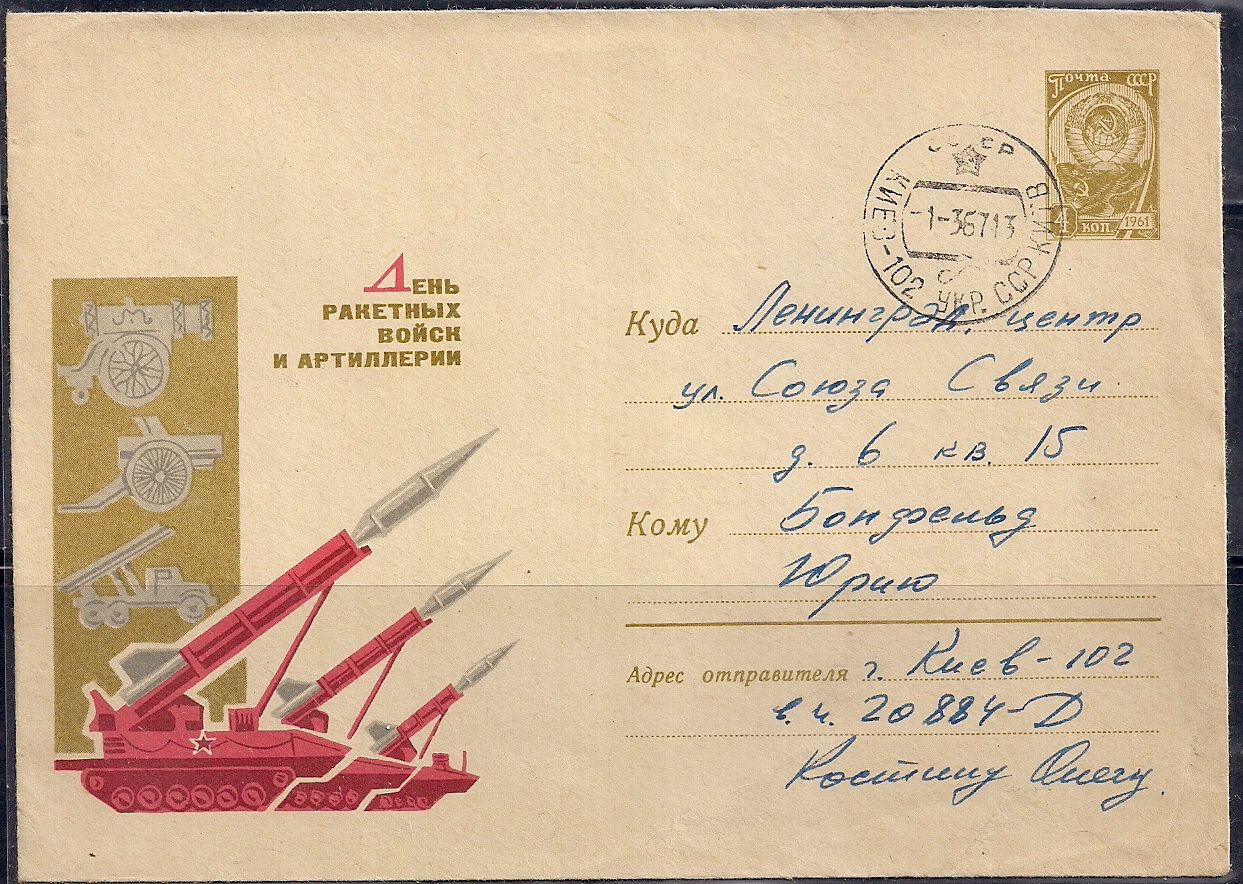 Почта СССР
4 коп. 1961
СССР
КИЕВ-102 УКР. ССР КИЇВ
-1-36713
День
ракетных
войск
и артиллерии
Куда Ленинград, центр
ул. Союза Связи
д. 6 кв. 15
Кому Бонфельд
Юрию
Адрес отправителя г. Киев-102
в.ч. 20884-Д
Костину Олегу.